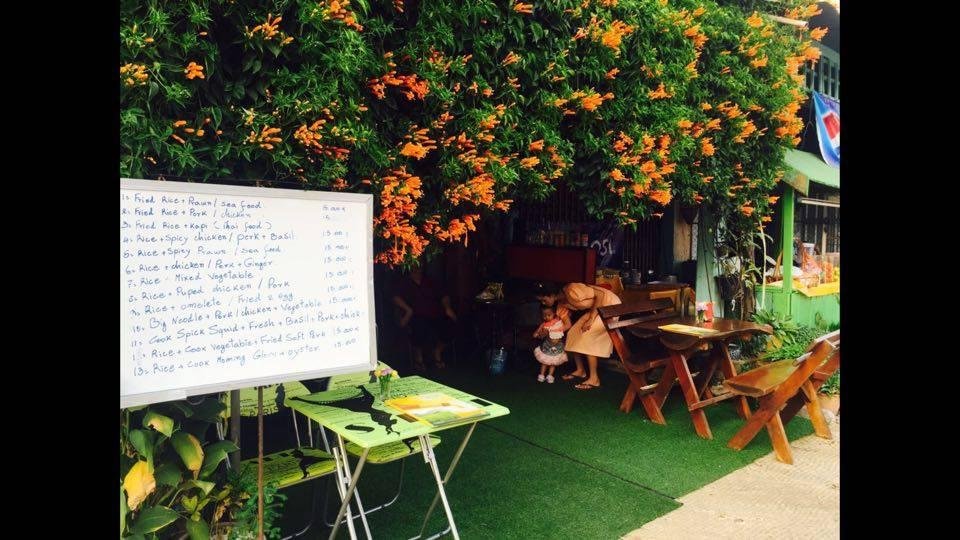 1= Fried Rice + Prawn / sea food 15.000 K
2= Fried Rice + Pork / chicken 15
3= Fried Rice + Kapi (thai food)
4= Rice + Spicy chicken / pork + Basil 15.000
5= Rice + Spicy Prawn / sea food 15.000
6= Rice + chicken / Pork + Ginger 15.000
7= Rice + Mixed Vegetable 15.000
8= Rice + Puped chicken / Pork 15.000
9= Rice + omelete / Fried 2 egg 15.000
10= Big Noodle + Pork / chicken + Vegetable 15.000
11= Cook Spick Squid + Fresh + Basil + Pork + chick
Rice + Cook Vegetable + Fried Soft Pork 15.000
13= Rice + Cook Morning Glory + oyster 15.000